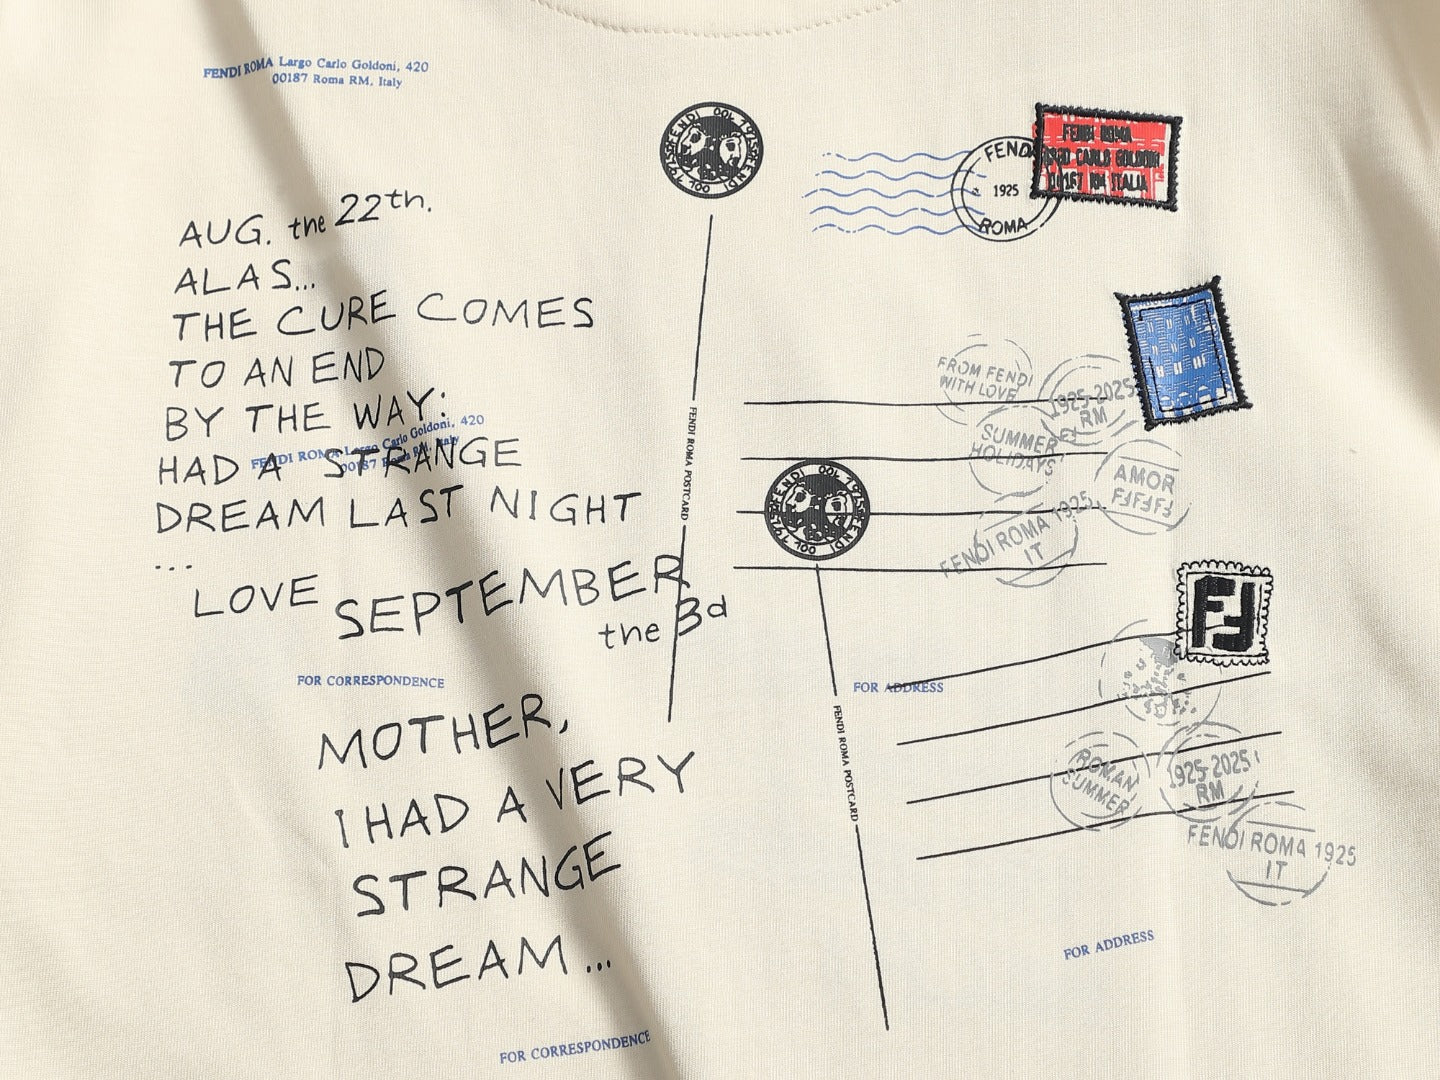 FENDI ROMA Largo Carlo Goldoni, 420
00187 Roma RM, Italy
AUG. the 22th.
ALAS...
THE CURE COMES
TO AN END
BY THE WAY:
HAD A STRANGE
DREAM LAST NIGHT
...
LOVE
FENDI ROMA Largo Carlo Goldoni, 420
00187 Roma RM, Italy
SEPTEMBER
the 3d
FOR CORRESPONDENCE
MOTHER,
I HAD A VERY
STRANGE
DREAM...
FOR CORRESPONDENCE
FENDI OOL 1925
FENDI OOL 1925
FENDI ROMA POSTCARD
FENDI
1925
ROMA
FENDI ROMA
CARLO GOLDONI
00187 RM ITALIA
FROM FENDI
WITH LOVE
1925-2025
RM
SUMMER
HOLIDAYS
AMOR
FENDI ROMA 1925
IT
FENDI OOL 1925
FENDI OOL 1925
FENDI ROMA POSTCARD
FOR ADDRESS
ROMAN
SUMMER
1925-2025
RM
FENDI ROMA 1925
IT
FOR ADDRESS